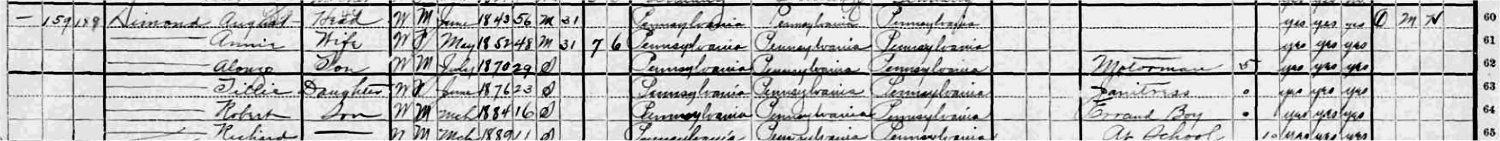 159 189 Dimond August Head W M June 1843 56 M 31 Pennsylvania Pennsylvania Pennsylvania yes yes yes O M H 60
Annie Wife W F May 1852 48 M 31 7 6 Pennsylvania Pennsylvania Pennsylvania yes yes yes 61
Alonzo Son W M July 1870 29 S Pennsylvania Pennsylvania Pennsylvania Motorman 5 yes yes yes 62
Tillie Daughter W F June 1876 23 S Pennsylvania Pennsylvania Pennsylvania Janitress 0 yes yes yes 63
Robert Son W M Mch 1884 16 S Pennsylvania Pennsylvania Pennsylvania Errand Boy 0 yes yes yes 64
Richard W M Mch 1889 11 S Pennsylvania Pennsylvania Pennsylvania At School 10 yes yes yes 65